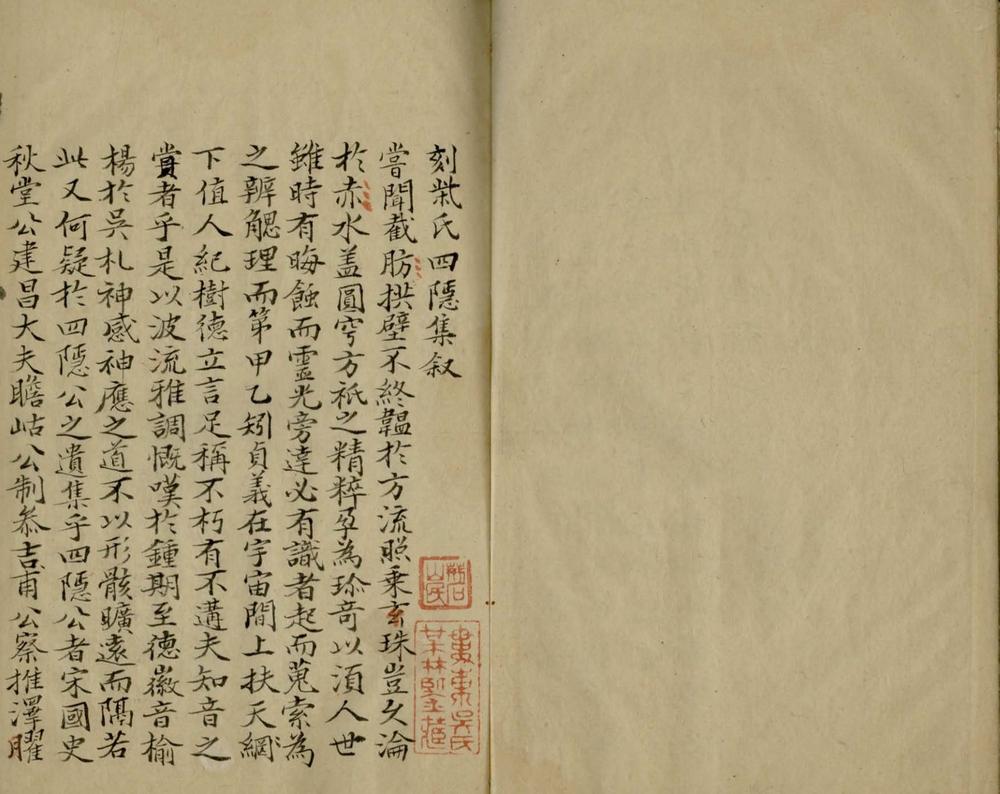 刻柴氏四隱集叙
嘗聞截肪拱璧不終韞於方流照乘玄珠豈久淪
於赤水盖圓穹方祇之精粹孕為珍奇以須人世
雖時有晦蝕而靈光旁達必有識者起而蒐索為
之辨䚡理而第甲乙矧貞義在宇宙間上扶天綱
下值人紀樹德立言足稱不朽有不遘夫知音之
賞者乎是以波流雅調慨嘆於鍾期至德徽音揄
楊於吳札神感神應之道不以形骸曠遠而隔若
此又何疑於四隱公之遺集乎四隱公者宋國史
秋堂公建昌大夫瞻岵公制叅吉甫公察推澤臞
婁東吳氏